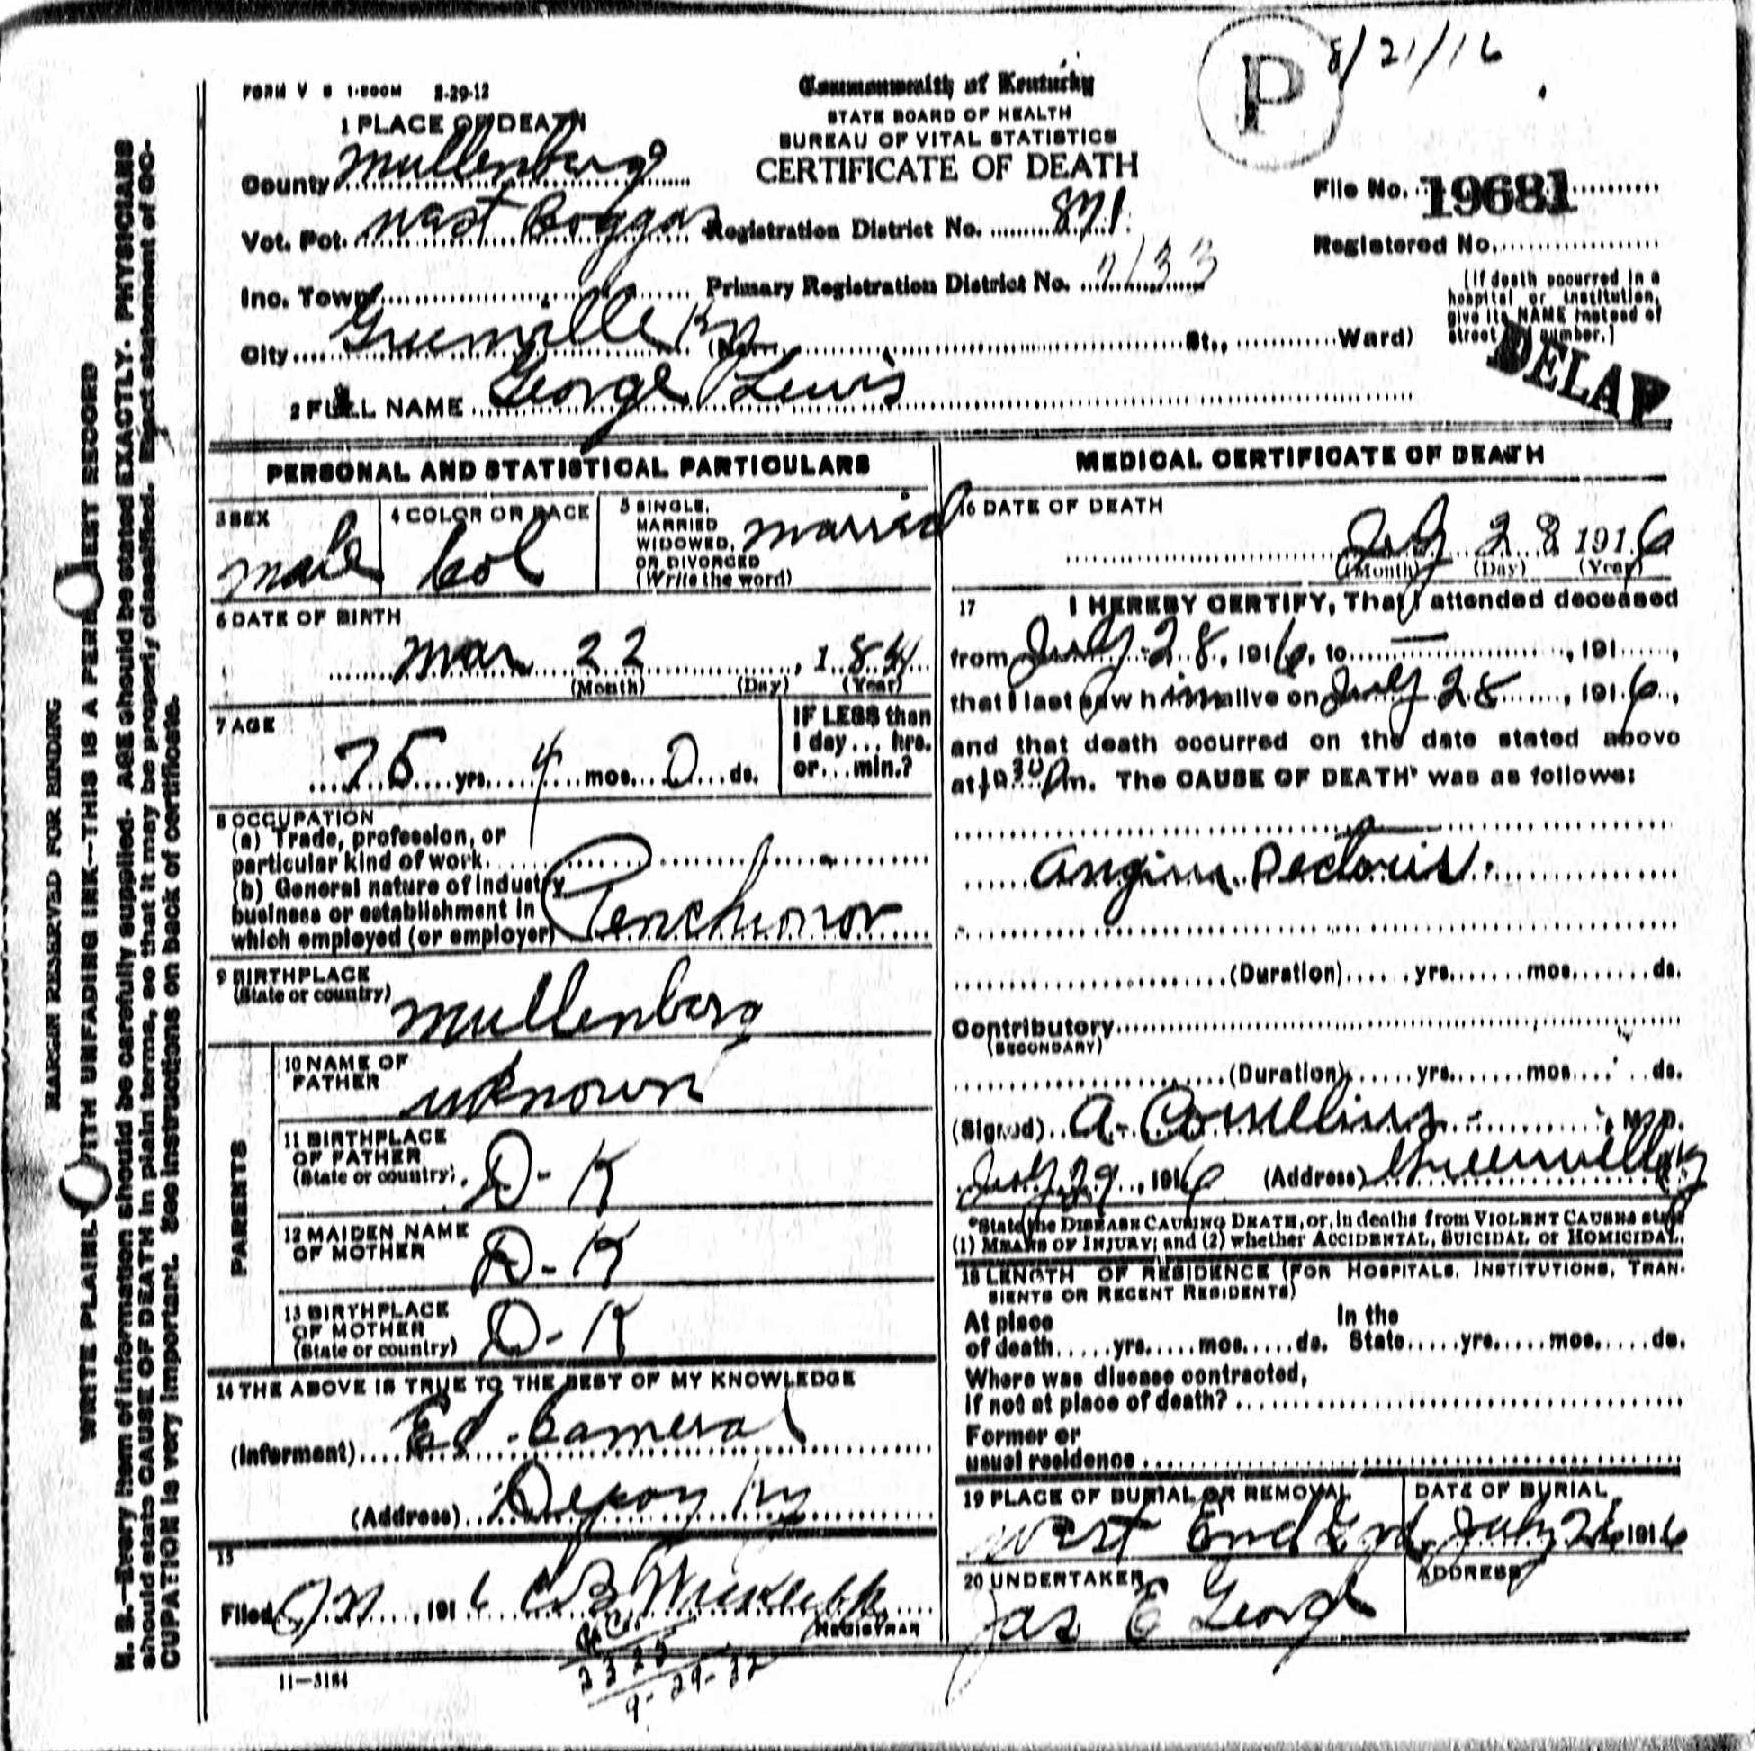 8/21/16
P
FORM V S 1-500M 8-29-12
Commonwealth of Kentucky
STATE BOARD OF HEALTH
BUREAU OF VITAL STATISTICS
CERTIFICATE OF DEATH
1 PLACE OF DEATH
County Mullenberg
File No. 19681
Vot. Pct. West Boggas Registration District No. 871
Registered No.
Inc. Town Primary Registration District No. 7133
(If death occurred in a hospital or institution, give its NAME instead of street and number.)
City Greenville Ky (No. St., Ward)
DELAP
2 FULL NAME George Lewis
PERSONAL AND STATISTICAL PARTICULARS
3 SEX
male
4 COLOR OR RACE
Col
5 SINGLE, MARRIED WIDOWED, OR DIVORCED (Write the word)
married
6 DATE OF BIRTH
Mar 22, 184
(Month) (Day) (Year)
7 AGE
75 yrs. 4 mos. 0 ds.
IF LESS than
1 day... hrs.
or... min.?
8 OCCUPATION
(a) Trade, profession, or
particular kind of work
(b) General nature of industry
business or establishment in
which employed (or employer)
9 BIRTHPLACE
(State or country)
Mullenberg
PARENTS
10 NAME OF
FATHER
unknown
11 BIRTHPLACE
OF FATHER
(State or country)
D-K
12 MAIDEN NAME
OF MOTHER
D-K
13 BIRTHPLACE
OF MOTHER
(State or country)
D-K
14 THE ABOVE IS TRUE TO THE BEST OF MY KNOWLEDGE
(Informant) Ed. Cameral
(Address) Depoy Ky
15
Filed, 1916 CB Wickliffe
REGISTRAR
2325
9-29-32
11-3184
MEDICAL CERTIFICATE OF DEATH
16 DATE OF DEATH
July 28 1916
(Month) (Day) (Year)
17 I HEREBY CERTIFY, That I attended deceased
from July 28, 1916, to —, 191,
that I last saw him alive on July 28, 1916,
and that death occurred on the date stated above
at 10 30 m. The CAUSE OF DEATH* was as follows:
Angina Pectoris.
(Duration) yrs. mos. ds.
Contributory
(SECONDARY)
(Duration) yrs. mos. ds.
(Signed) A. Cornelius, M.D.
July 29, 1916 (Address) Greenville Ky
*State the DISEASE CAUSING DEATH, or, in deaths from VIOLENT CAUSES state
(1) MEANS OF INJURY; and (2) whether ACCIDENTAL, SUICIDAL or HOMICIDAL.
18 LENGTH OF RESIDENCE (FOR HOSPITALS, INSTITUTIONS, TRAN-
SIENTS OR RECENT RESIDENTS)
At place In the
of death yrs. mos. ds. State yrs. mos. ds.
Where was disease contracted,
If not at place of death?
Former or
usual residence
19 PLACE OF BURIAL OR REMOVAL
West End
DATE OF BURIAL
July 26 1916
20 UNDERTAKER
Jas E George
ADDRESS
MARGIN RESERVED FOR BINDING
WRITE PLAINLY WITH UNFADING INK—THIS IS A PERMANENT RECORD
N. B.—Every item of information should be carefully supplied. AGE should be stated EXACTLY. PHYSICIANS
should state CAUSE OF DEATH in plain terms, so that it may be properly classified. Exact statement of OC-
CUPATION is very important. See instructions on back of certificate.